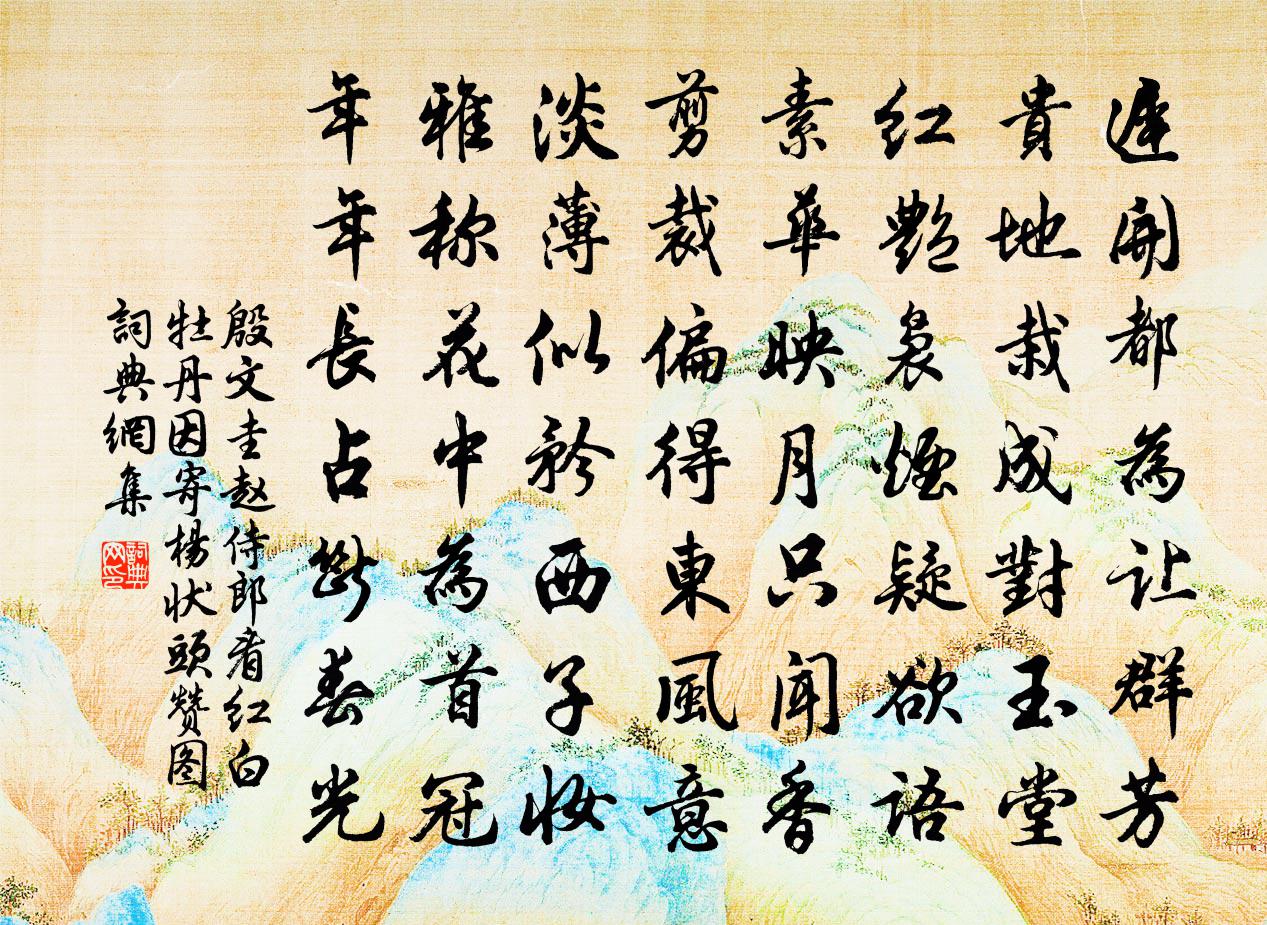 遲開都為让群芳
貴地栽成對玉堂
红艷裊煙疑欲语
素華映月只聞香
剪裁偏得東風意
淡薄似矜西子妆
雅称花中為首冠
年年長占断春光
殷文圭赵侍郎看红白
牡丹因寄楊状頭赞图
詞典網集
詞典网印